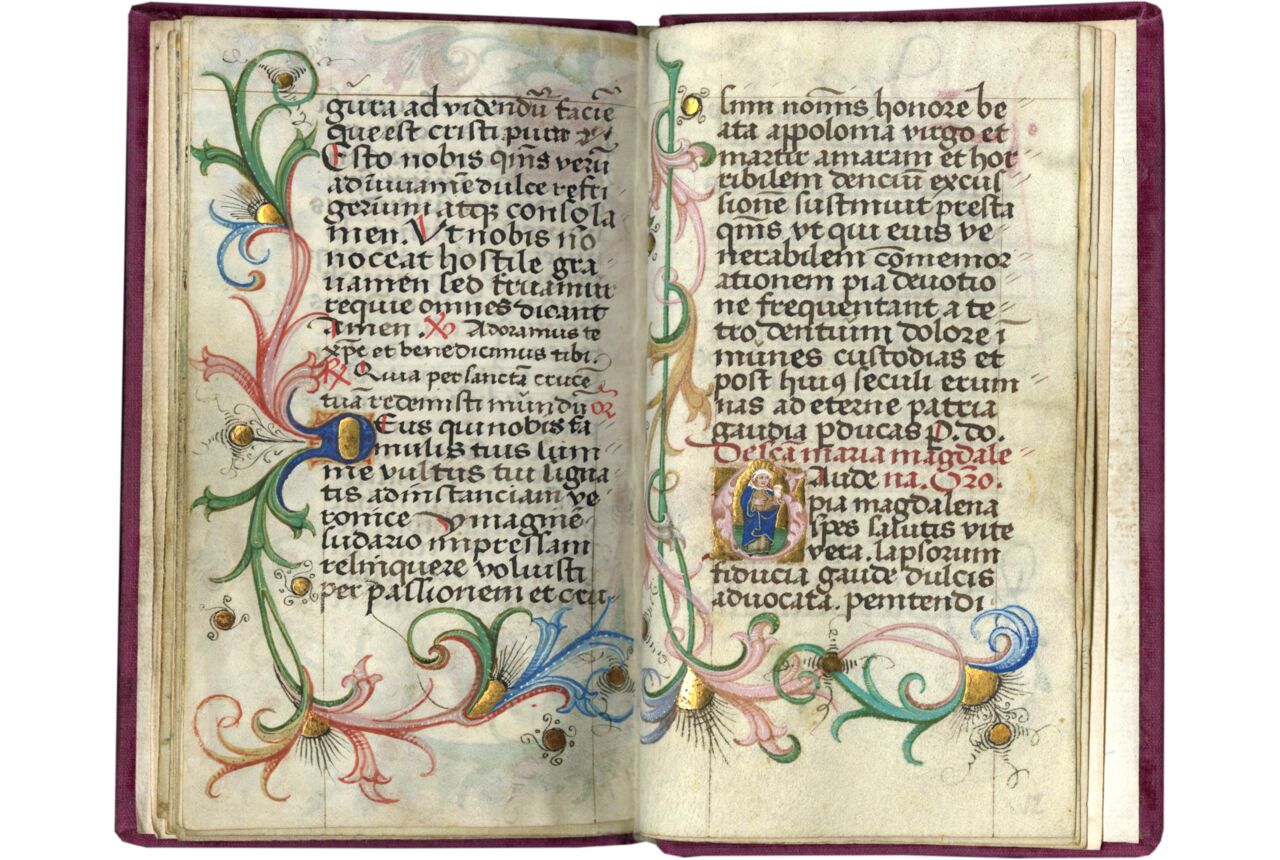 gura ad videndū faciē
que est cristi pura
Esto nobis qms̄ verū
adiuuamē dulce refri
gerium atqꝫ consola
men. Vt nobis nō
noceat hostile gra
uamen sed fruamur
requie omnes dicant
amen. Adoramus te
xp̄e et benedicimus tibi.
℞ Quia per sanctā crucē
tuā redemisti mūdū or̄
Deus qui nobis fa
mulis tuis lum
ine vultus tui signa
tis ad instanciam ve
ronice ymaginē
sudario impressam
relinquere voluisti
per passionem et cru
lum nominis honore be
ata appolonia virgo et
martir amaram et hor
ribilem denciū excus
sionē sustinuit presta
qms̄ vt qui eius ve
nerabilem cōmemor
ationem pia deuotio
ne frequentant a te
tro dentium dolore ī
munes custodias et
post huiꝰ seculi erum
nas ad eterne patria
gaudia ꝑducas P. do.
De scā maria magdale
Gaude na. Oro.
pia magdalena
spes salutis vite
vera. lapsorum
fiducia gaude dulcis
aduocata. penitendi